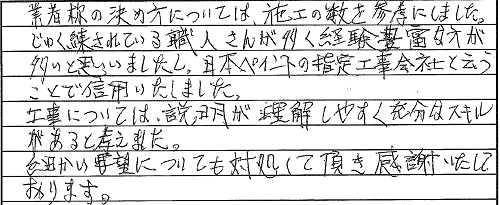 業者様の決め方については、施工の数を参考にしました。
じゅく練されている職人さんが多く経験豊富な方が
多いと思いましたし、日本ペイントの指定工事会社と云う
ことで信用いたしました。
工事については、説明が理解しやすく充分なスキル
があると考えました。
細かい要望についても対処して頂き感謝いたして
おります。